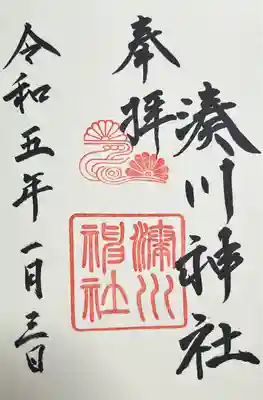 奉拝
湊川神社
湊川神社
令和五年一月三日